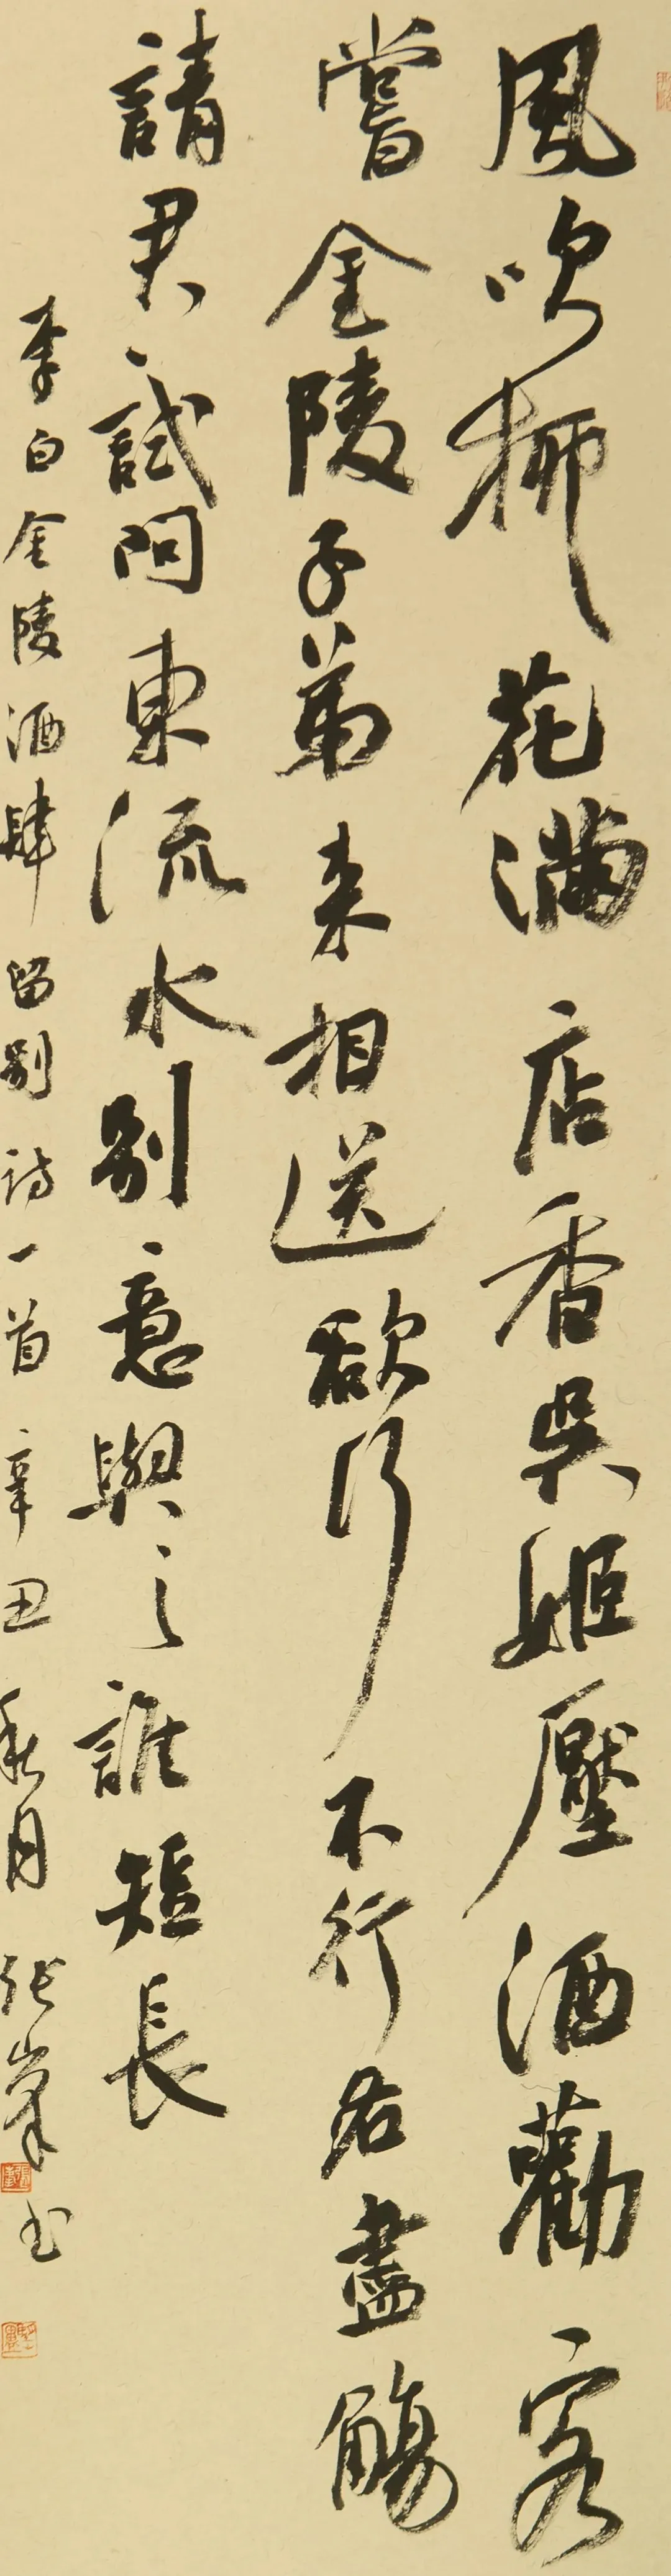 風吹柳花滿店香吳姬壓酒勸客
嘗金陵子弟來相送欲行不行各盡觴
請君試問東流水別意與之誰短長
李白金陵酒肆留别诗一首辛丑秋月張峯书